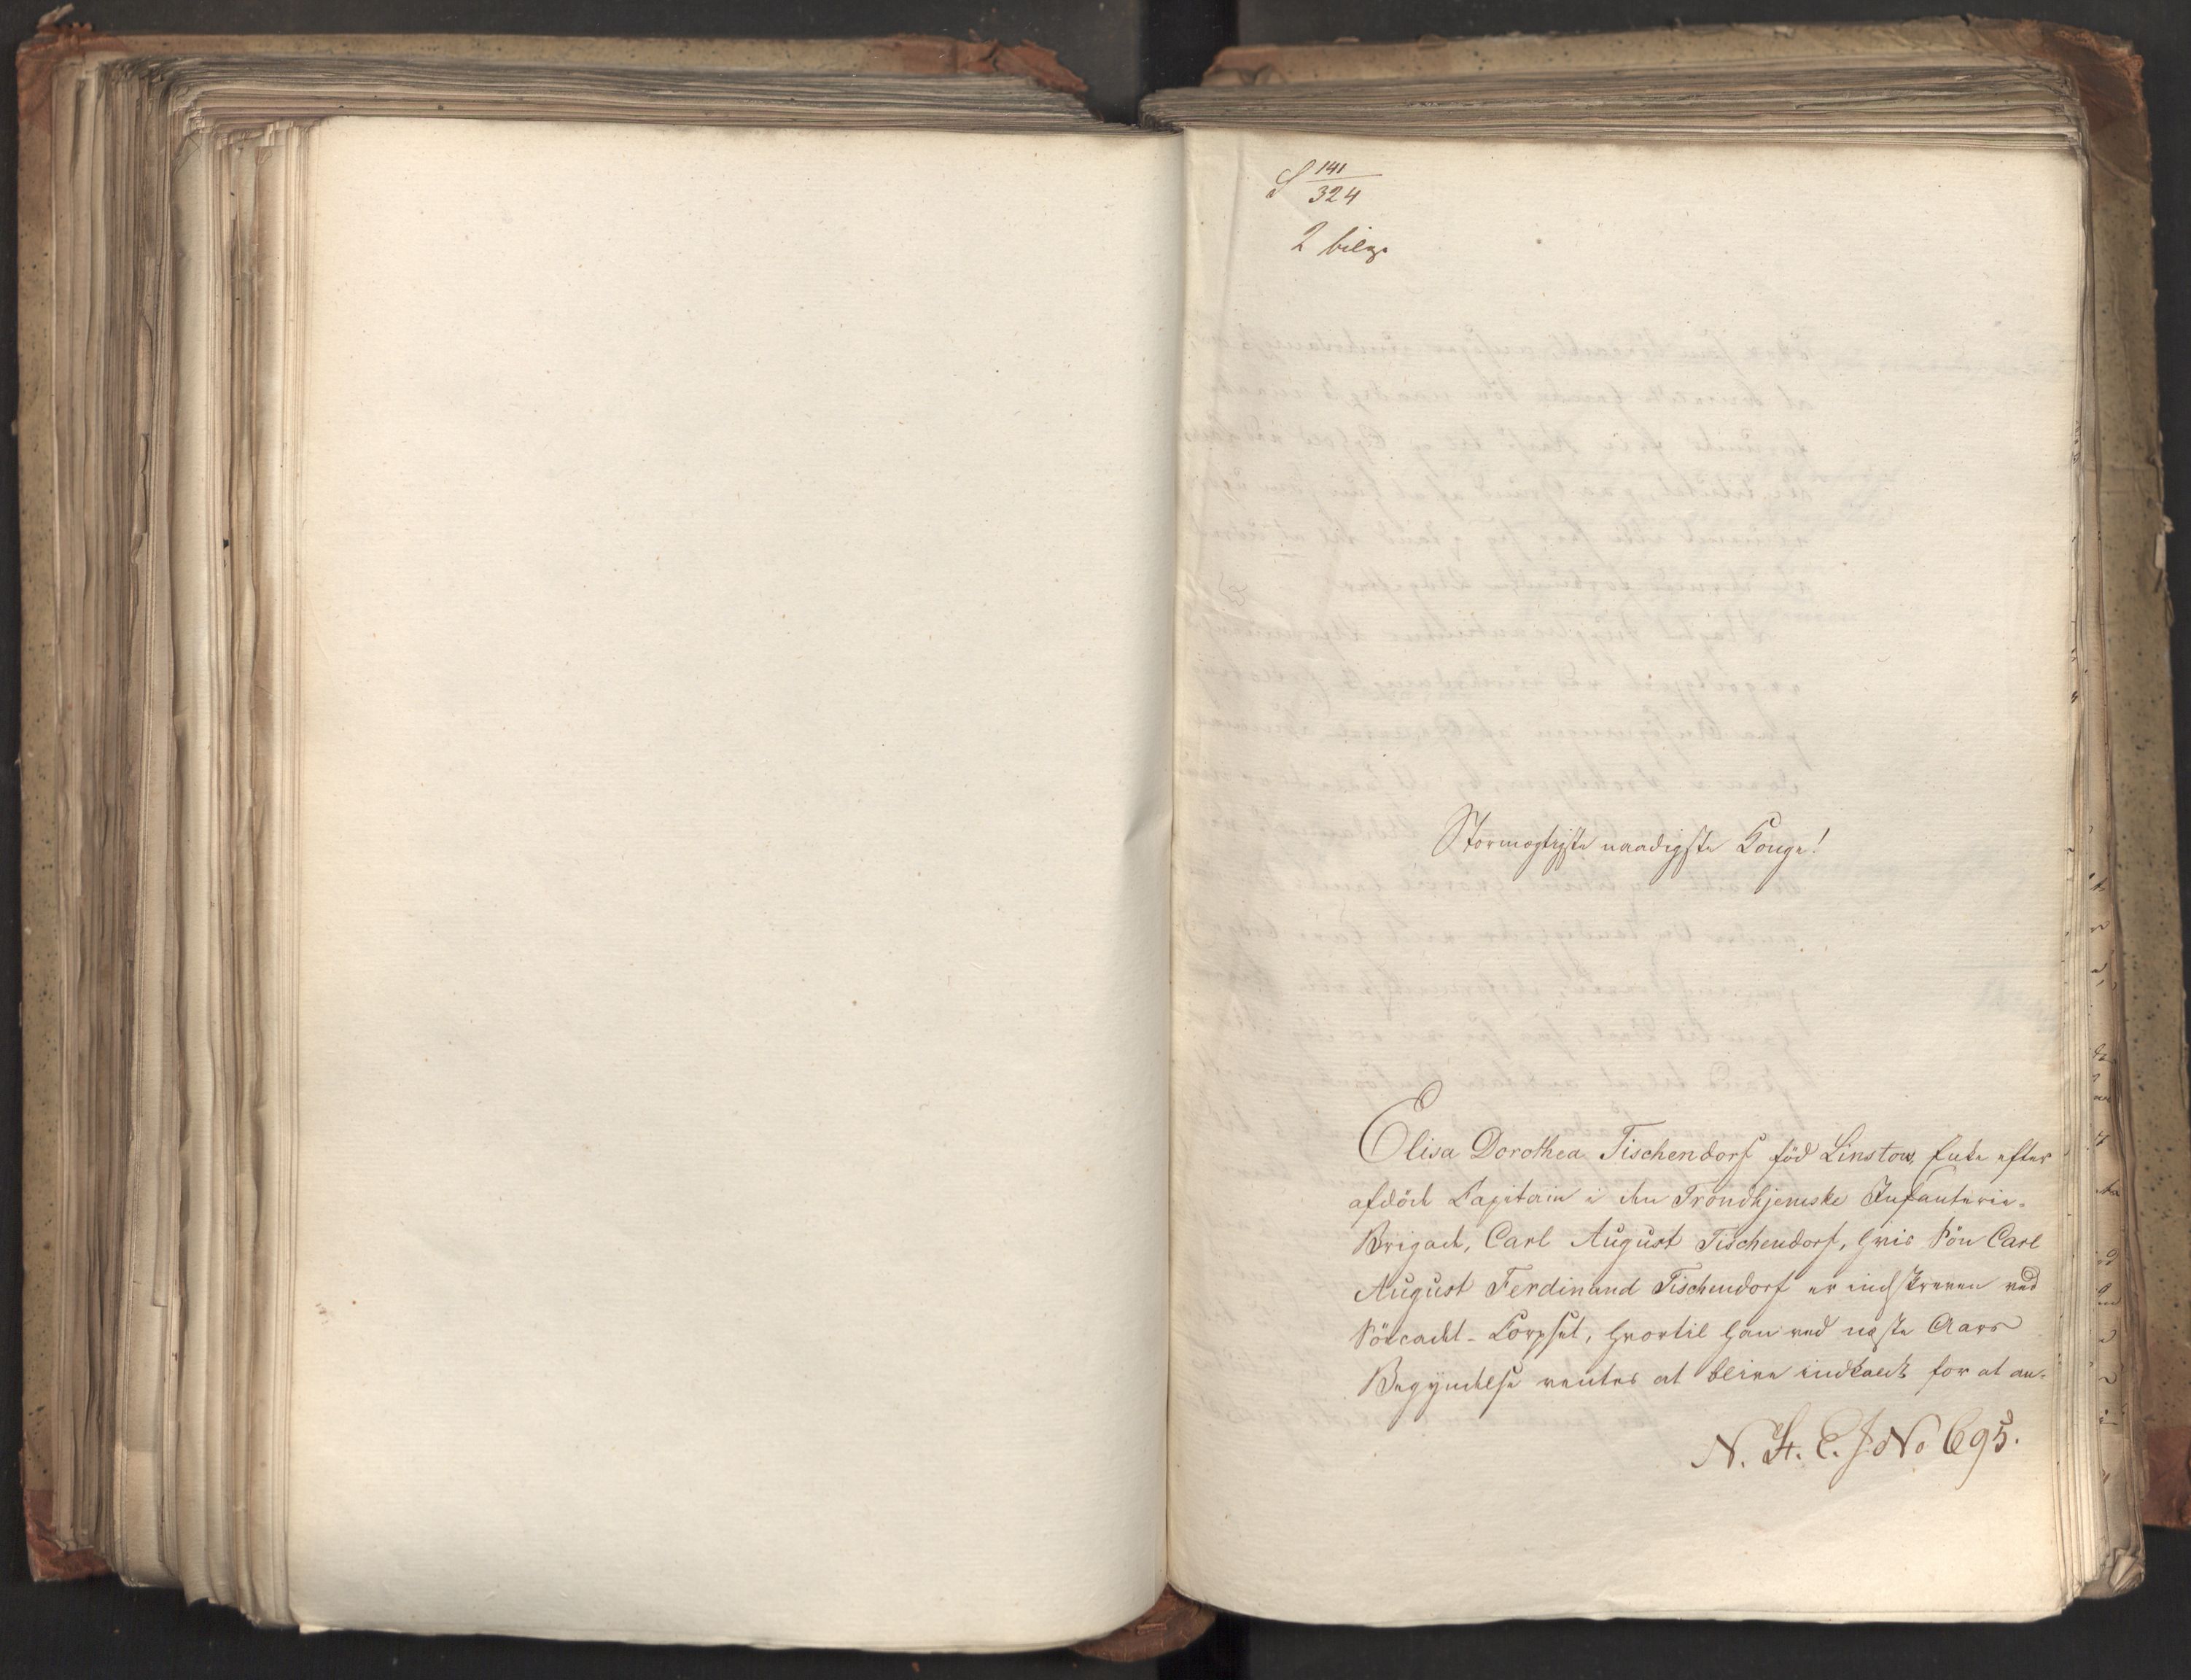 S 141/324
2 bilag
Stormægtigste naadigste Konge!
Elisa Dorothea Tischendorf föd Linstow, Enke efter
afdöde Capitain i den Trondhjemske Infanterie-
Brigade, Carl August Tischendorf, hvis Sön Carl
August Ferdinand Tischendorf er indskreven ved
Söecadet-Corpset, hvortil han ved næste Aars
Begyndelse ventes at blive indkaldt for at an-
N. St. E. J. No 695.